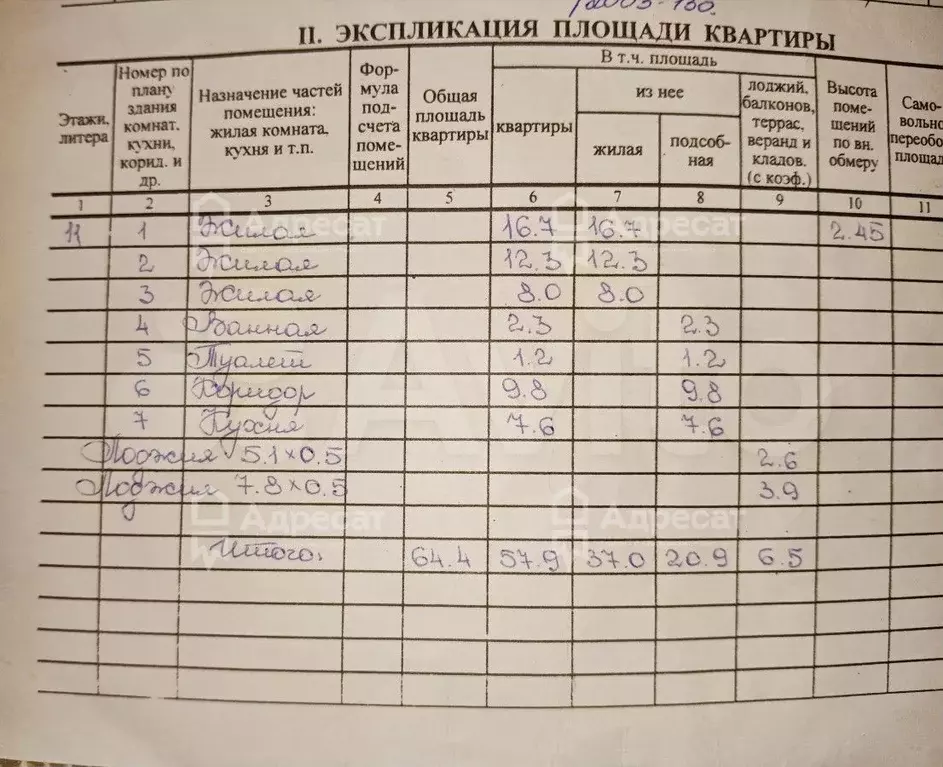 II. ЭКСПЛИКАЦИЯ ПЛОЩАДИ КВАРТИРЫ
Этажи, литера
Номер по плану здания комнат. кухни, корид. и др.
Назначение частей помещения: жилая комната, кухня и т.п.
Фор- мула под- счета поме- щений
Общая площадь квартиры
В т.ч. площадь
квартиры
из нее
жилая
подсоб- ная
лоджий, балконов, террас, веранд и кладов. (с коэф.)
Высота поме- щений по вн. обмеру
Само- вольно переобо площад
1 2 3 4 5 6 7 8 9 10 11
11 1 Жилая 16.7 16.7 2.45
2 Жилая 12.3 12.3
3 Жилая 8.0 8.0
4 Ванная 2.3 2.3
5 Туалет 1.2 1.2
6 Коридор 9.8 9.8
7 Кухня 7.6 7.6
Лоджия 5.1×0.5 2.6
Лоджия 7.8×0.5 3.9
Итого: 64.4 57.9 37.0 20.9 6.5
Адресат
Адресат
Адресат
Адресат
Avito